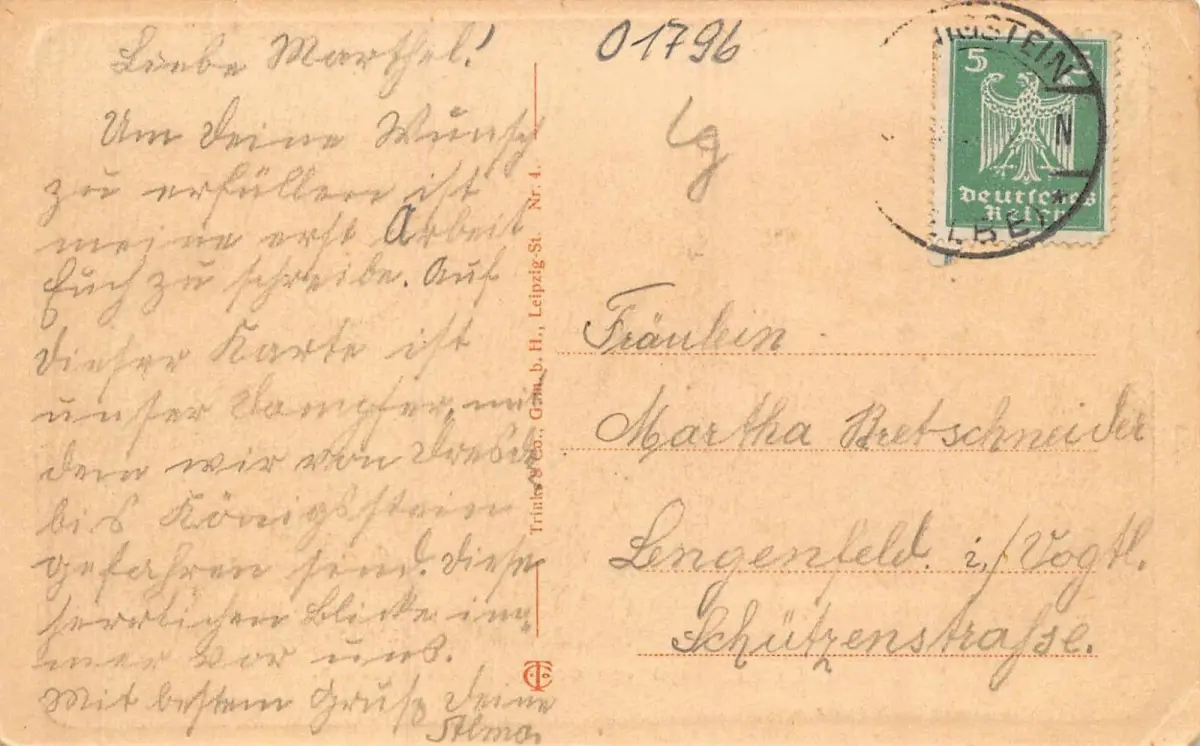 Liebe Marthel!
Um deine Wunsch
zu erfüllen ist
meine erst Arbeit
Euch zu schreibe. Auf
dieser Karte ist
unser Dampfer, mit
dem wir von Dresd
bis Königsstein
gefahren sind. Diese
herrlichen Blicke im-
mer vor uns.
Mit bestem Gruß Deine
Alma.
Trinks & Co., G.m.b.H., Leipzig-St. Nr. 4.
01796
5 5
Deutsches
Reich
IGSTEIN
ELBE
Fräulein
Martha Bretschneider
Lengenfeld. i./Vogtl.
Schützenstrasse.